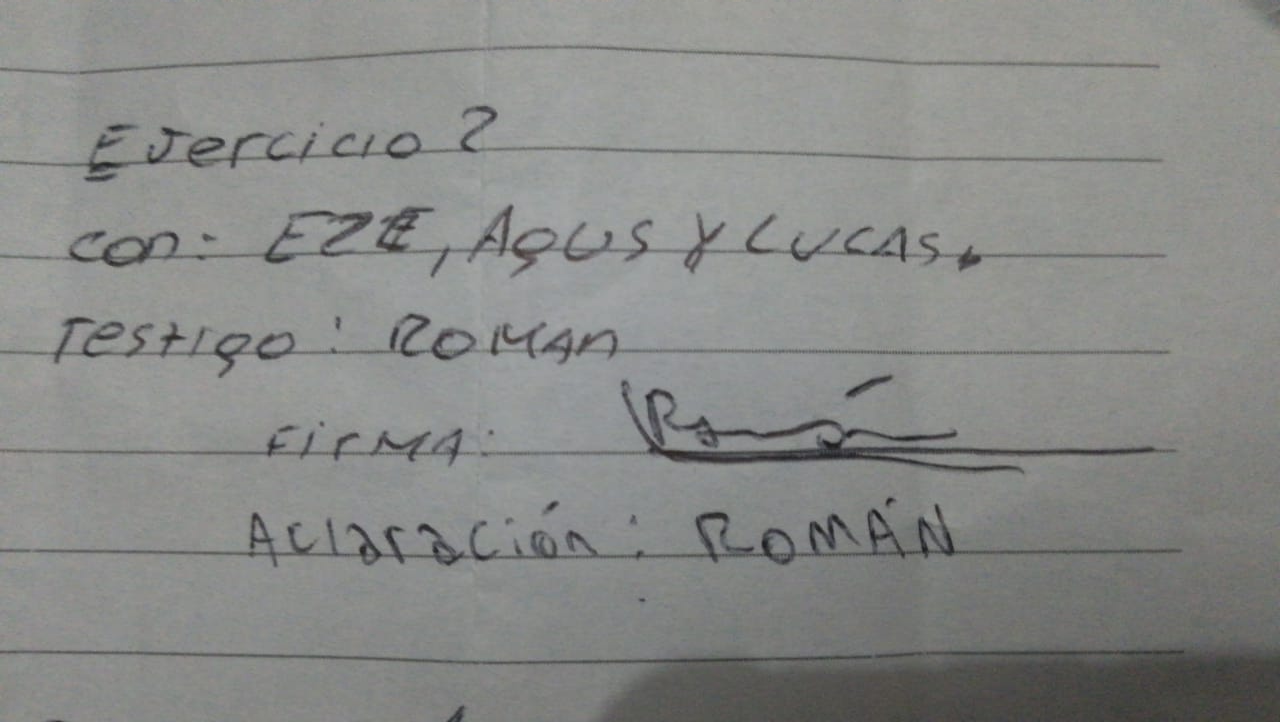 Ejercicio 2
con: EZE, Agus y LUCAS.
Testigo: ROMAn
FirMA: Román
Aclaración: ROMÁN